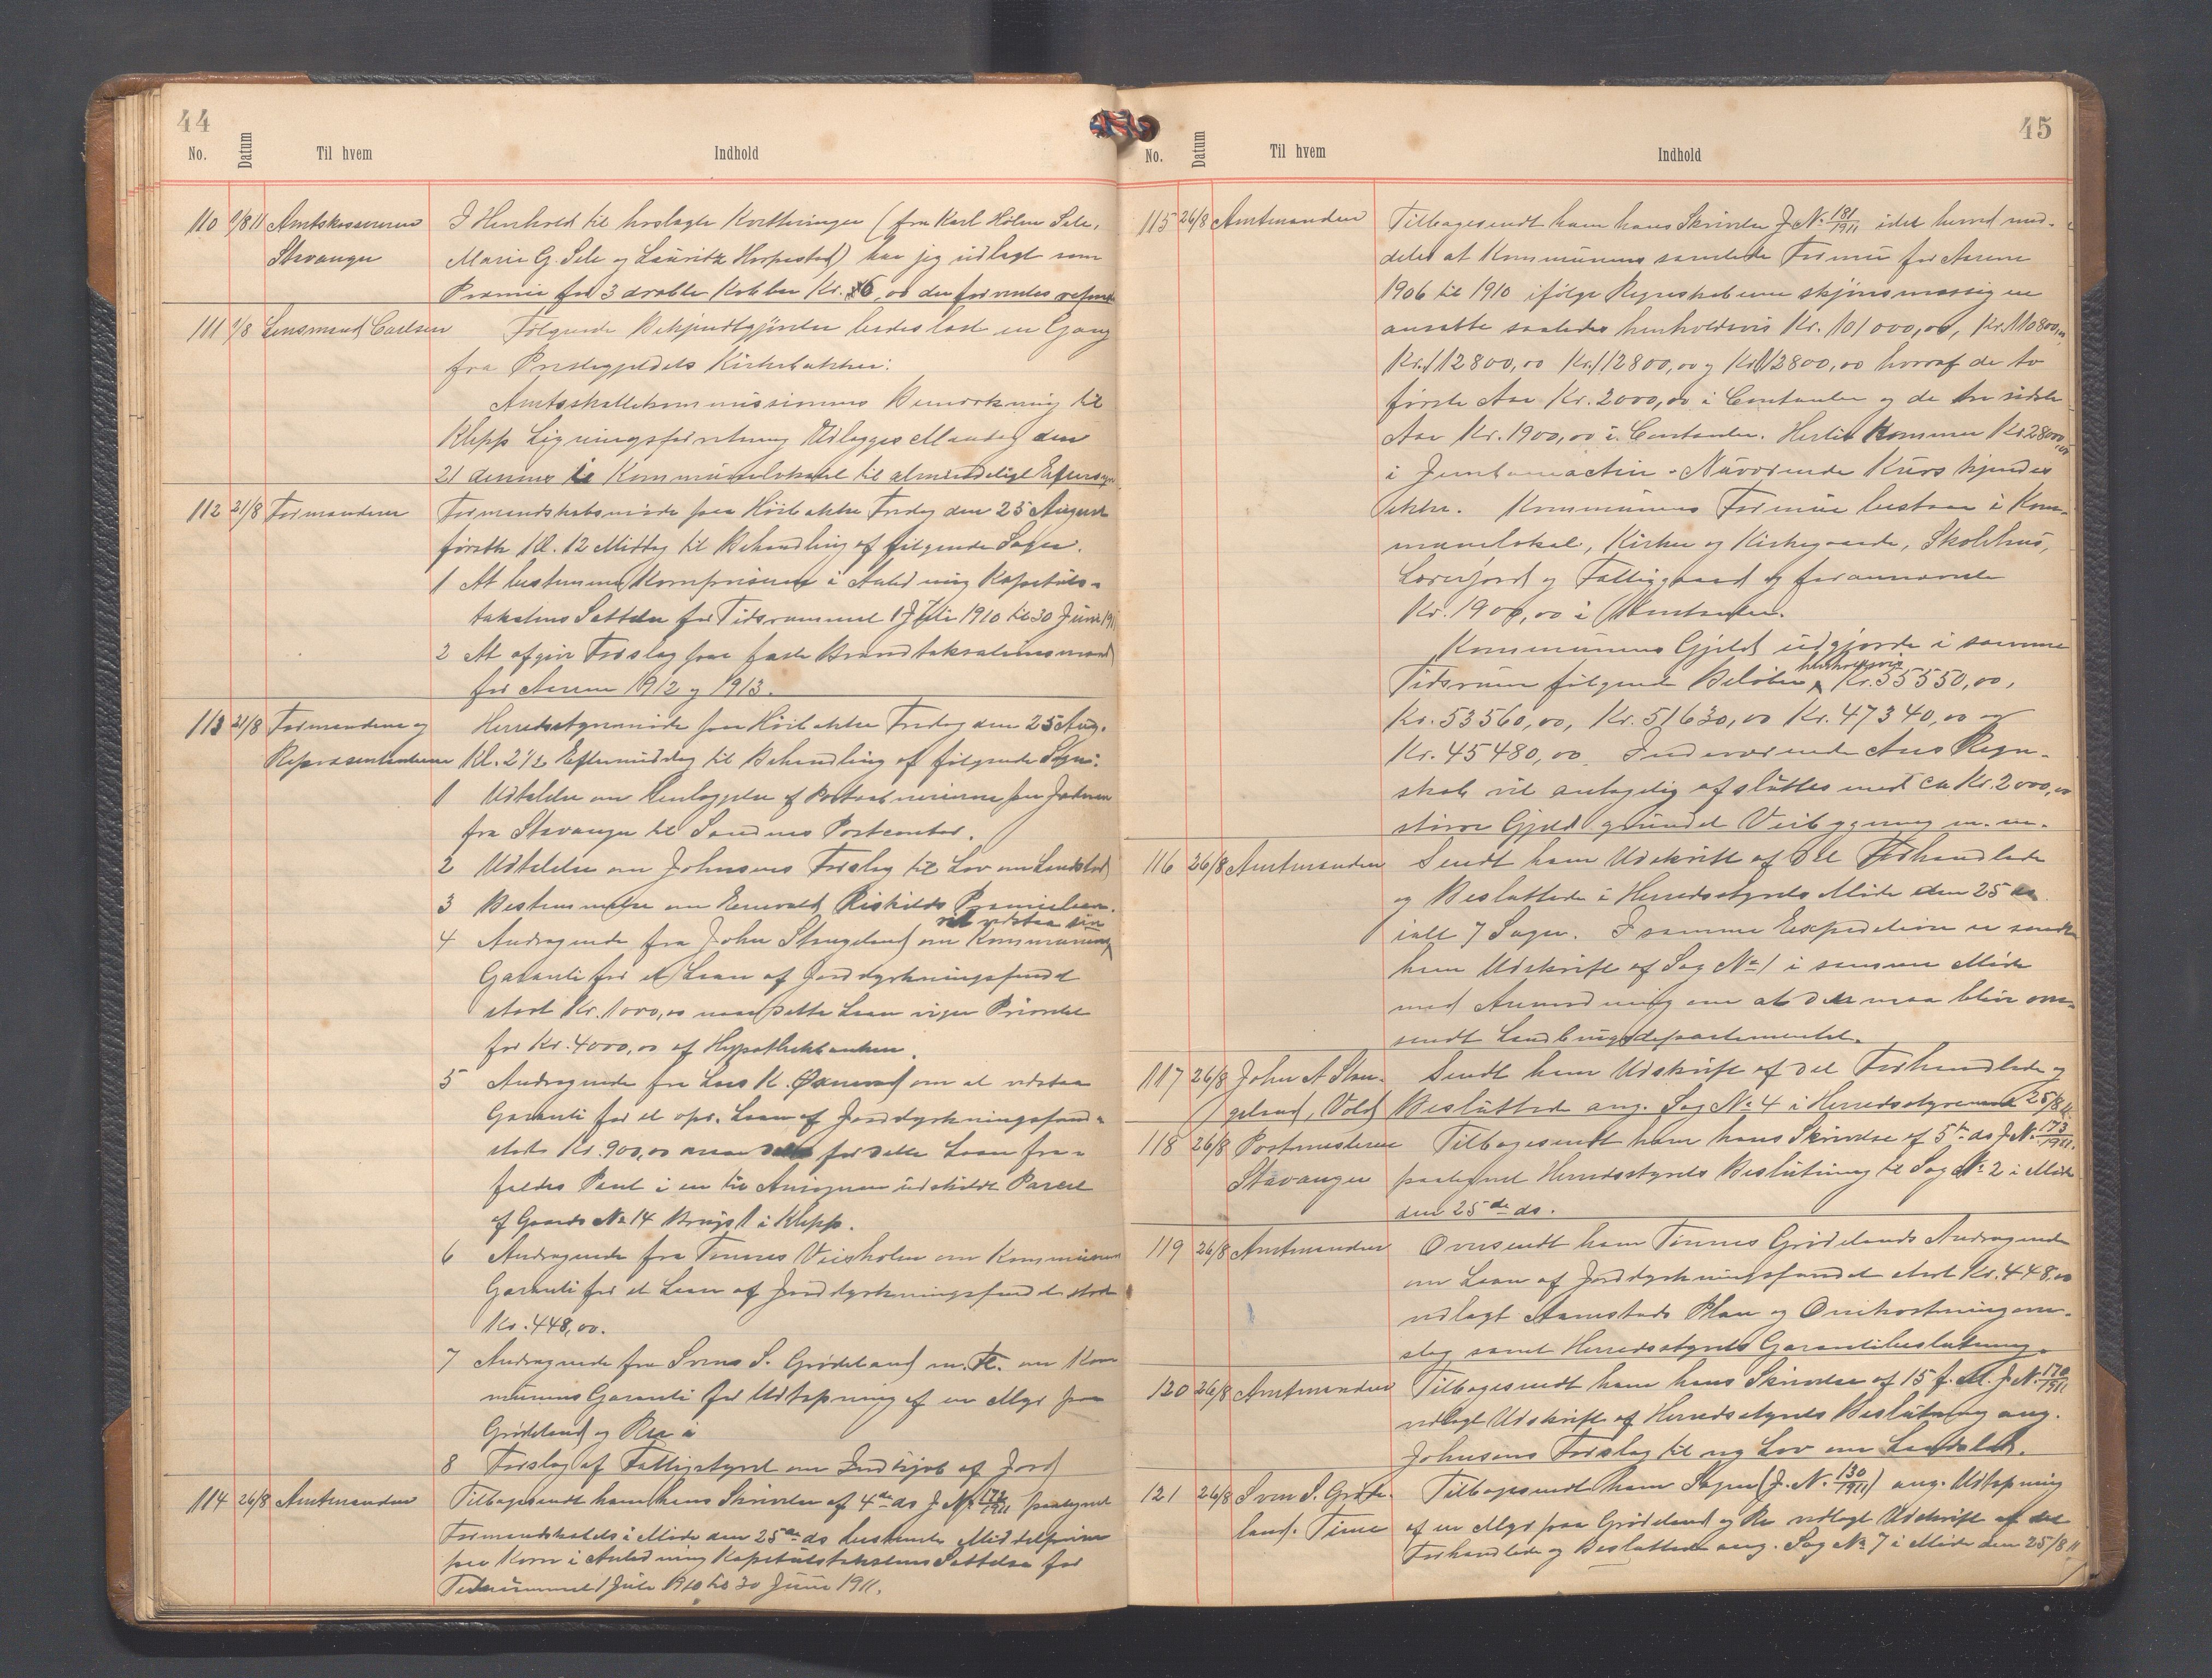 44
No. Datum Til hvem Indhold
110 9/8 11 Amtskassereren I Henhold til hoslagte Kvitteringer (fra Karl Holen Sele,
Stavanger Marie G. Sele og Lauritz Horpestad) har jeg udlagt som
Præmie for 3 dræbte Kobber Kr. 6,00 der forventes refund
111 9/8 Lensmand Carlsen Følgende Bekjendtgjørelse bedes læst en Gang
fra Præstegjeldets Kirkebakker:
Amtsskattekommissionens Bemærkning til
Klepp Ligningsforretning udlægges Mandag den
21 dennes i Kommunelokalet til almindeligt Eftersyn
112 21/8 Formændene Formandskabsmøde paa Hørbakke Fredag den 25 August
førstk Kl. 12 Middag til Behandling af følgende Sager.
1 At bestemme Kornpriserne i Anledning Kapitels-
takstens Sættelse for Tidsrummet 1 Juli 1910 til 30 Juni 1911
2 At afgive Forslag paa faste Brandtakstationsmænd
for Aarene 1912 og 1913.
113 21/8 Formændene og Herredsstyremøde paa Hørbakke Fredag den 25 Aug.
Repræsentanterne Kl. 2 1/2 Eftermiddag til Behandling af følgende Sager:
1 Udtalelse om Henlæggelse af Postaabnerierne paa Jæderen
fra Stavanger til Sandnes Postcontor.
2 Udtalelse om Johnsens Forslag til Lov om Landslod
3 Bestemmelse om Enevald Riskilds Præmielaan.
vil vedstaa sin
4 Andragende fra John Stangeland om Kommunens
Garanti for et Laan af Jorddyrkningsfondet
stort Kr. 1000,00 naar dette Laan viger Prioritet
for Kr. 4000,00 af Hypothekbanken.
5 Andragende fra Lars K. Øxnevad om at vedstaa
Garanti for et opr. Laan af Jorddyrkningsfond-
stort Kr. 900,00 naar for dette Laan fra-
faldes Pant i en til Ansgaren udskildt Parcel
af Gaards No 14 Brugs 1 i Klepp.
6 Andragende fra Tønnes Veisholen om Kommunens
Garanti for et Laan af Jorddyrkningsfondet stort
Kr. 448,00.
7 Andragende fra Svens S. Grødeland m. Fl. om Kom
munens Garanti for Udtapning af en Myr paa
Grødeland og Re
8 Forslag af Fattigstyret om Indkjøb af Jord
114 26/8 Amtmanden Tilbagesendt ham hans Skrivelse af 4de ds J. No 172/1911 paategnet
Formandskabets i Møde den 25de ds bestemte Middelpriser
paa Korn i Anledning Kapitelstakstens Sættelse for
Tidsrummet 1 Juli 1910 til 30 Juni 1911.
45
No. Datum Til hvem Indhold
115 26/8 Amtmanden Tilbagesendt ham hans Skrivelse J. No. 181/1911 idet herved med-
deles at Kommunens samlede Formue for Aarene
1906 til 1910 ifølge Regnskaberne skjønsmæssig er
ansatte saaledes henholdsvis Kr. 101000,00, Kr. 110800,00
Kr. 112800,00 Kr. 112800,00 og Kr. 112800,00 hvoraf de to
første Aar Kr. 2000,00 i Contanter og de tre sidste
Aar Kr. 1900,00 i Contanter. Hertil kommer Kr. 2800,00
i Jernbaneactier. Nuværende Kurs kjendes
ikke. Kommunens Formue bestaar i Kom-
munelokal, Kirker og Kirkegaarde, Skolehus,
Lærerjord og Fattiggaard og forannævnte
Kr. 1900,00 i Contanter.
Kommunens Gjeld udgjorde i samme
henholdsvis
Tidsrum følgende Beløber Kr. 55550,00,
Kr. 53560,00, Kr. 51630,00 Kr. 47340,00 og
Kr. 45480,00. Indeværende Aars Regn-
skab vil antagelig afsluttes med ca Kr. 2000,00
større Gjeld grundet Veibygning m. m.
116 26/8 Amtmanden Sendt ham Udskrift af det Forhandlede
og Besluttede i Herredsstyrets Møde den 25 ds.
ialt 7 Sager. I samme Expedition er sendt
ham Udskrift af Sag No 1 i samme Møde
med Anmodning om at den maa blive om-
sendt Landbrugsdepartementet.
117 26/8 John A Stan- Sendt ham Udskrift af det Forhandlede og
geland, Vold Besluttede ang. Sag No 4 i Herredsstyremøde 25/8 11.
118 26/8 Postmesteren Tilbagesendt ham hans Skrivelse af 5te ds J. No 173/1911.
Stavanger paategnet Herredsstyrets Beslutning til Sag No. 2 i Møde
den 25de ds.
119 26/8 Amtmanden Oversendt ham Tønnes Grødelands Andragende
om Laan af Jorddyrkningsfondet stort Kr. 448,00
vedlagt Aamstads Plan og Omkostningsover-
slag samt Herredsstyrets Garantibeslutning.
120 26/8 Amtmanden Tilbagesendt ham hans Skrivelse af 15 f. M. J. No. 170/1911
vedlagt Udskrift af Herredsstyrets Beslutning ang.
Johnsens Forslag til ny Lov om Landslod.
121 26/8 Sven S. Grøde- Tilbagesendt ham Sagen (J. No. 130/1911) ang. Udtapning
land. Time af en Myr paa Grødeland og Re vedlagt Udskrift af det
Forhandlede og Besluttede ang. Sag No 7 i Møde den 25/8 11